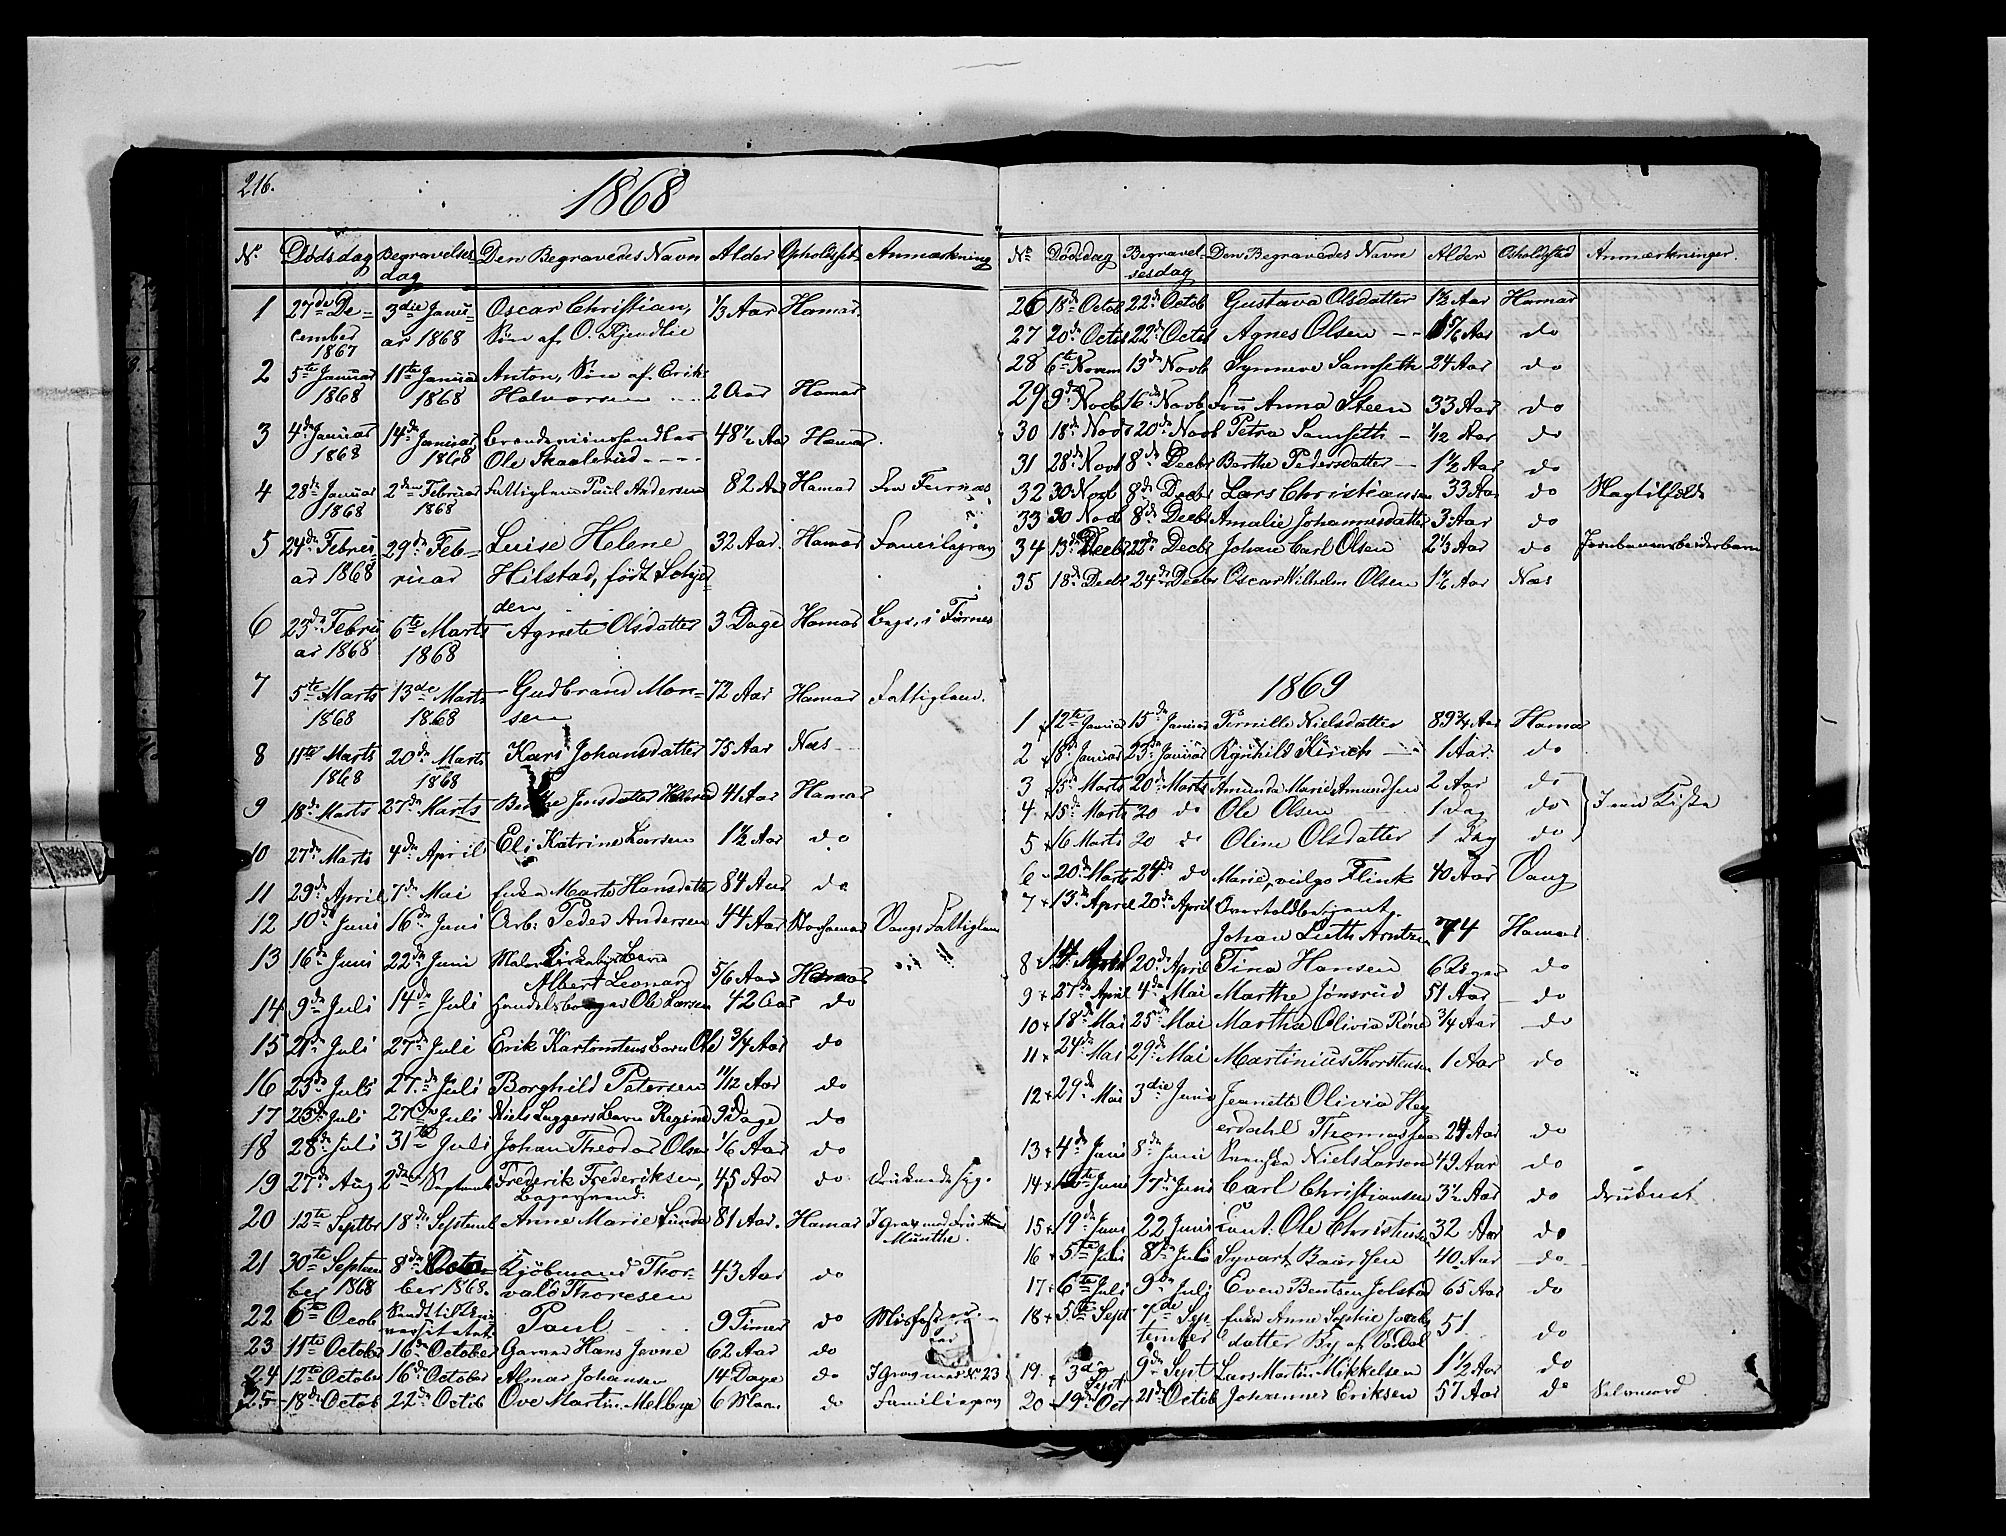 216.
1868
No Dødsdag Begravelses- Den Begravedes Navn Alder Opholdsst. Anmærkning
dag
1 27de De- 3die Janu- Oscar Christian, 1/3 Aar Hamar.
cember ar 1868 Søn af O.
1867
2 5te Januar 11te Januar Anton, Søn af Erik
1868 1868 Halvorsen 2 Aar Hamar
3 4de Januar 14de Januar Brændeviinshandler 48 1/2 Aar Hamar.
1868 1868 Ole Skaalerud
4 28de Januar 2den Februar Fattiglem Paul Andersen 82 Aar Hamar Fra Furnæs
1868 1868
5 24de Febru 29de Feb- Luise Helene 32 Aar Hamar Familiegrav
ar 1868 ruar Hilstad, født
den
6 23de Febru 6te Marts Agnete Olsdatter 3 Dage Hamar Begr. i Furnes
ar 1868 1868
7 5te Marts 13de Marts Gudbrand Mon- 72 Aar Hamar Fattiglem.
1868 1868 sen
8 11te Marts 20de Marts Kari Johansdatter 75 Aar Næs
1868 1868
9 18de Marts 27de Marts Berthe Jensdatter 41 Aar Hamar
10 27de Marts 4de April Eli Katrine Larsen 1 1/2 Aar do
11 29de April 7de Mai Enken Marte Hansdatter 84 Aar do
12 10de Juni 16de Juni Arb. Peder Andersen 44 Aar Storhamar Vangs Fattiglem
13 16de Juni 22de Juni Maler Barn
Albert Leonard 5/6 Aar Hamar
14 9de Juli 14de Juli Handelsborger Ole Larsen 42 Aar do
15 21de Juli 27de Juli Erik Karstensens Barn Ole 3/4 Aar do
16 23de Juli 27de Juli Borghild Petersen 11/12 Aar do
17 25de Juli 27de Juli Niels Barn Regine 9 Dage do
18 28de Juli 31te Juli Johan Theodor Olsen 1/6 Aar do
19 27de Aug 2den Septemb Frederik Frederiksen, 45 Aar do Druknede sig.
Bagersvend.
20 12te Septbr 18de Septemb Anne Marie Lunde 81 Aar. Hamar I Grav med Fru
Munthe.
21 30te Septem 8de Octo- Kjøbmand Thor- 43 Aar do
ber 1868 ber 1868. vald Thoresen
22 6te Octob Sendt til Uni Paul 9 Timer do Misfoster
versitetet
23 11te October 16de October Garver Hans Jevne 62 Aar do
24 12te October 16de October Almar Johansen 14 Dage do I Grav med No 23
25 18de Octob 22de Octob Ove Martin Melbye 6 Maan. do Familiegrav
No Dødsdag Begravel- Den Begravedes Navn Alder Opholdsted Anmærkninger.
sesdag
26 18de Octob 22de Octob Gustava Olsdatter 1 1/2 Aar Hamar
27 20de Octob 22de Octob Agnes Olsen 5/6 Aar do
28 6te Novem 13de Novb Synneve Samseth 24 Aar do
29 9de Novb 16de Novb Fru Anna Steen 33 Aar do
30 18de Novb 20de Novb Petra Samseth 1/12 Aar do
31 28de Novb 8de Decbr Berthe Pedersdatter 1 1/2 Aar do
32 30 Novb 8de Decbr Lars Christiansen 33 Aar do Slagtilfælde
33 30 Novb 8de Decbr Amalie Johannesdatter 3 Aar do
34 13de Decbr 22de Decbr Johan Carl Olsen 2 1/3 Aar do Jernbanearbeiderbarn
35 18de Decbr 24de Decbr Oscar Wilhelm Olsen 1 1/2 Aar Næs
1869
1 12te Januar 15de Januar Pernille Nielsdatter 89 3/4 Aar Hamar
2 18de Januar 23de Januar Kirsch 1 Aar. do
3 15de Marts 20de Marts Amunda Marie Amundsen 2 Aar do
4 15de Marts 20 do Ole Olsen 1 Dag do I een Kiste
5 16 Marts 20 do Oline Olsdatter 1 Dag do
6 20de Marts 24de do Marie, vulgo Flink 40 Aar Vang
7 13de April 20de April Overtoldbetjent
Johan Luth Arntzen 74 Hamar
8 April 20de April Tina Hansen 6 Uger do
9 27de April 4de Mai Marthe Jønsrud 51 Aar do
10 18de Mai 25de Mai Martha Olivia 3/4 Aar do
11 24de Mai 29de Mai Martinius Thorstensen 1 Aar do
12 29de Mai 3die Juni Jeanette Olivia Hey
erdahl Thomassen 24 Aar do
13 4de Juni 8de Juni Niels Larsen 49 Aar do
14 12te Juni 17de Juni Carl Christiansen 3 1/2 Aar do druknet
15 19de Juni 22 Juni Ole 32 Aar do
16 5te Juli 8de Juli Syvart Baardsen 40 Aar do
17 6te Juli 9de Juli Even Bentsen Jolstad 65 Aar do
18 5te Sept 7de Sep- Enke Anne Sophie Jacobs
tember datter By af 51 do
19. 3die 9de Sept Lars Martin Mikkelsen 1 1/2 Aar do
Sept
20 19de Oct 21de Octob Johannes Eriksen 57 Aar do Selvmord.